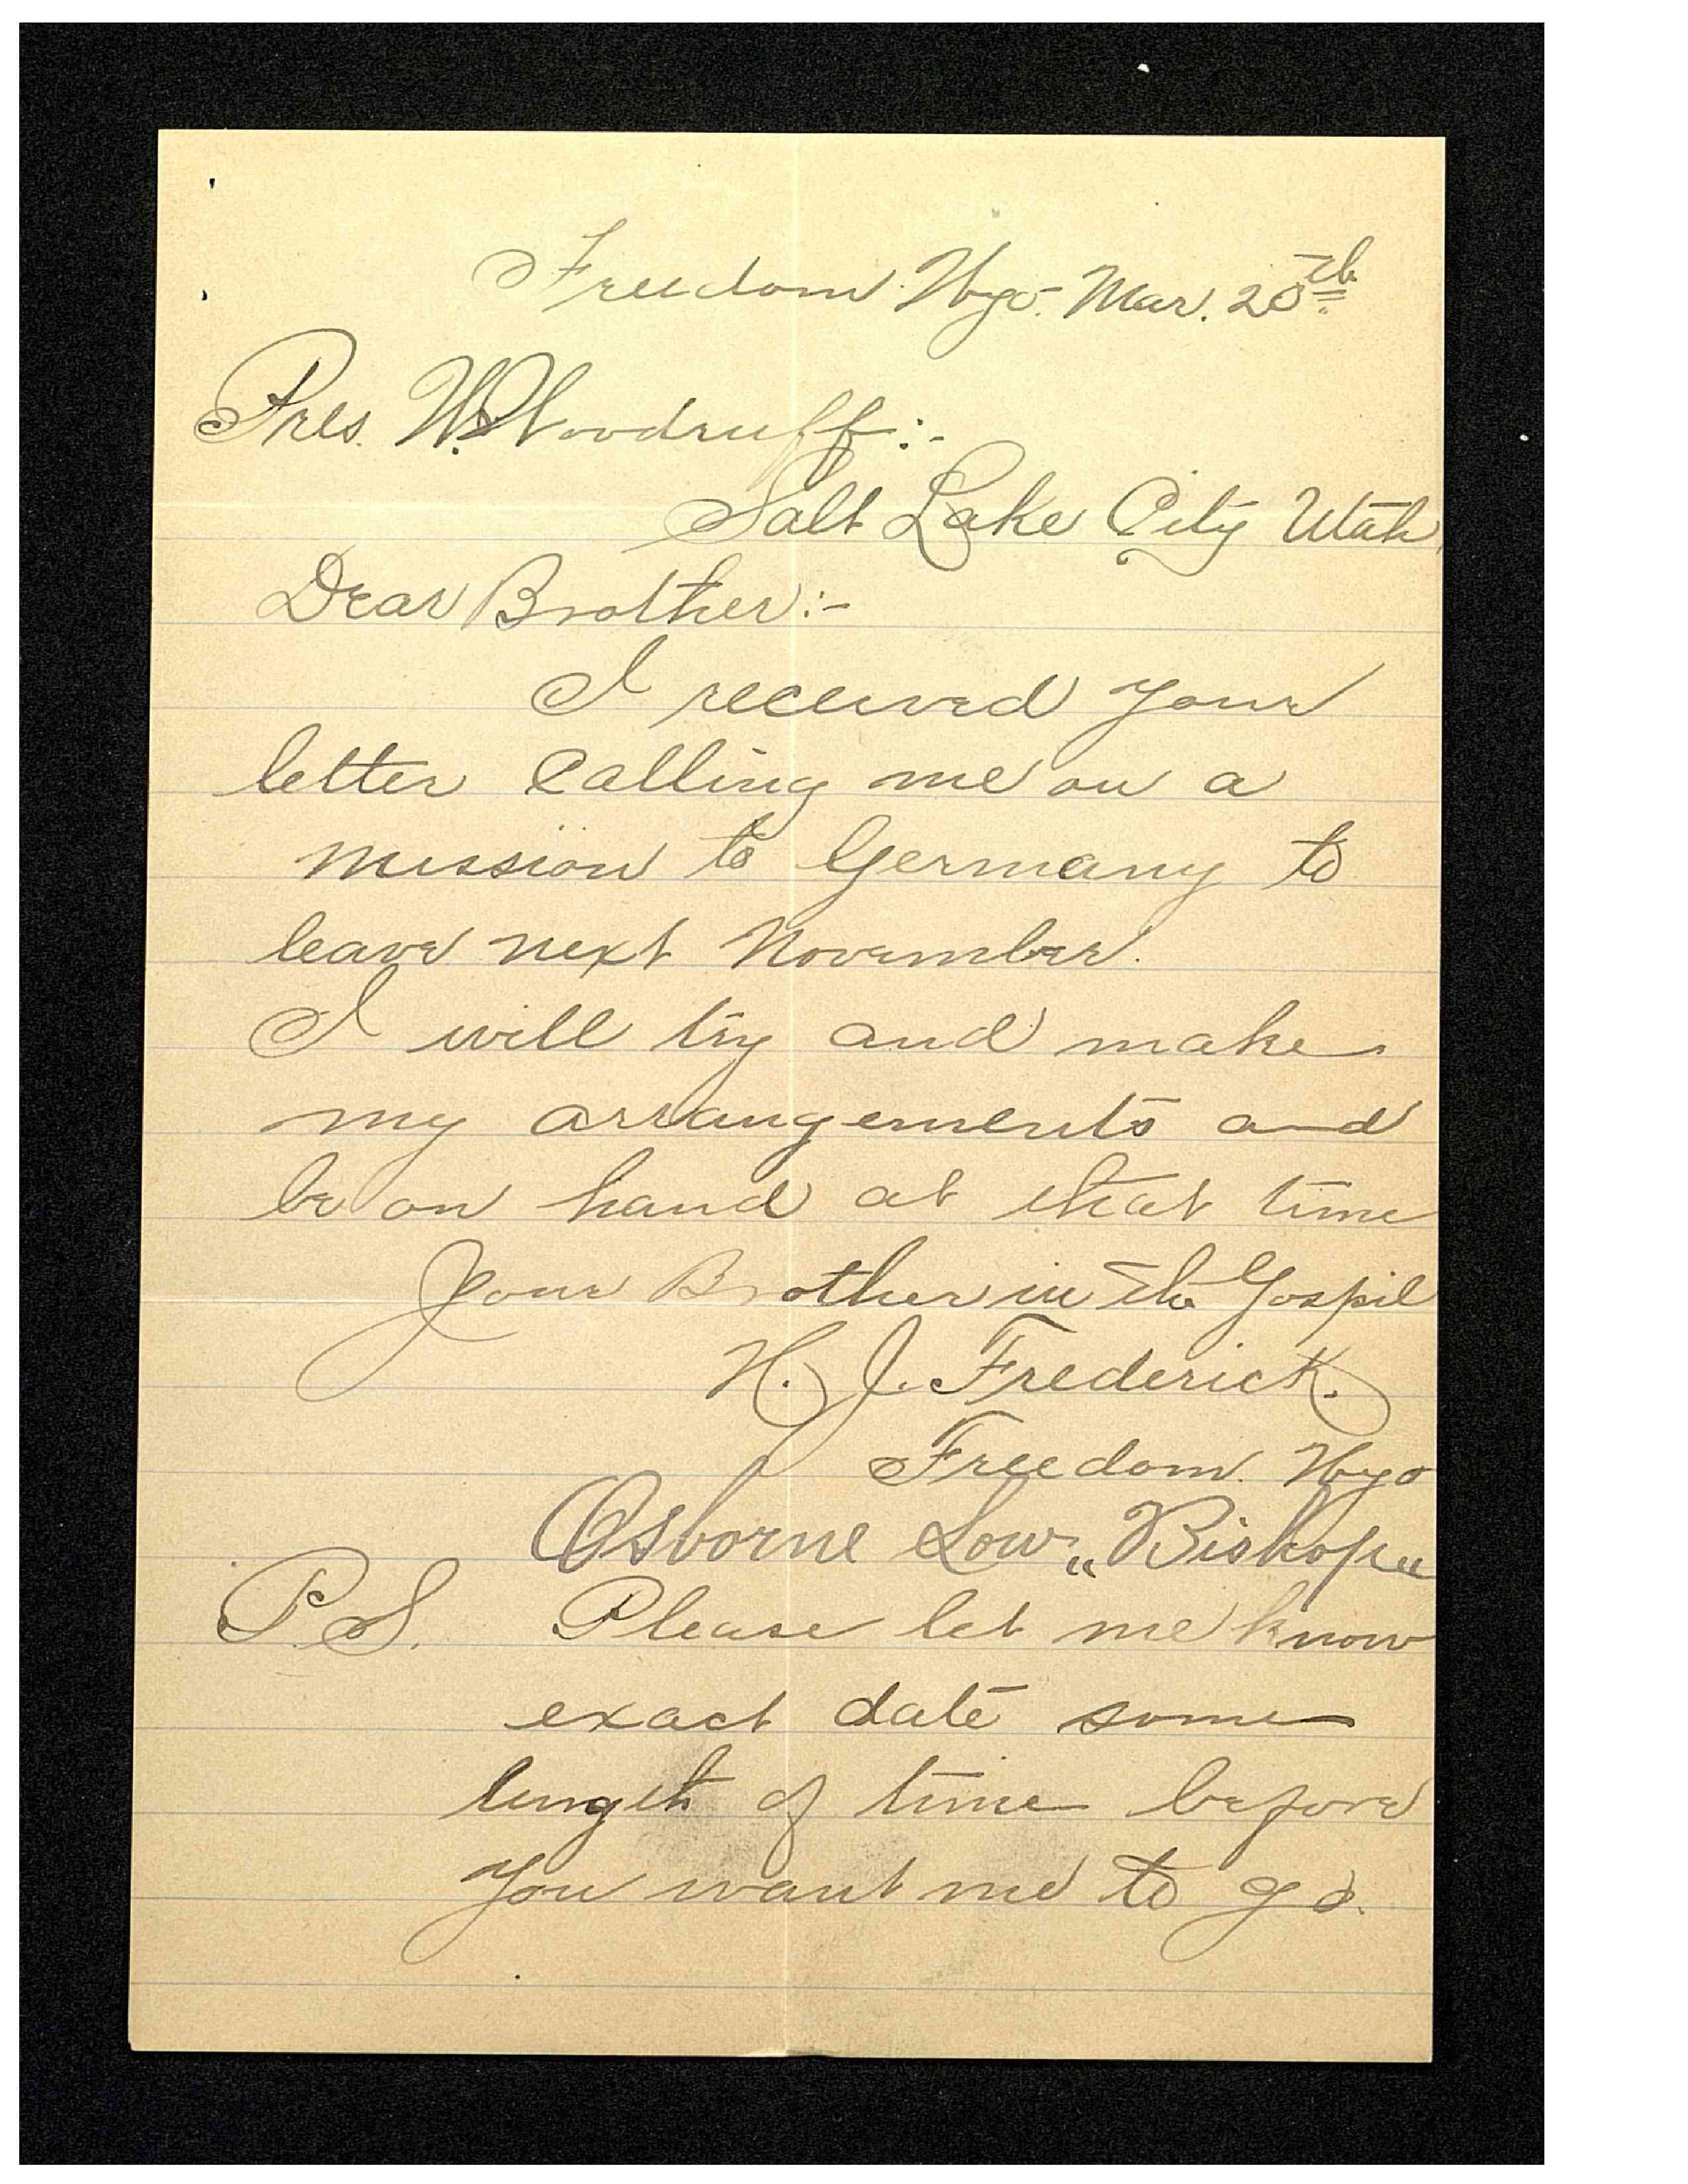 Freedom Wyo. Mar. 20th
Pres. W. Woodruff:-
Salt Lake City Utah
Dear Brother:-
I received your
letter calling me on a
mission to Germany to
leave next November.
I will try and make
my arrangements and
be on hand at that time
Your Brother in the Gospel
H. J. Frederick.
Freedom. Wyo
Osborne Low „Bishop„
P.S. Please let me know
exact date some
length of time before
you want me to go.